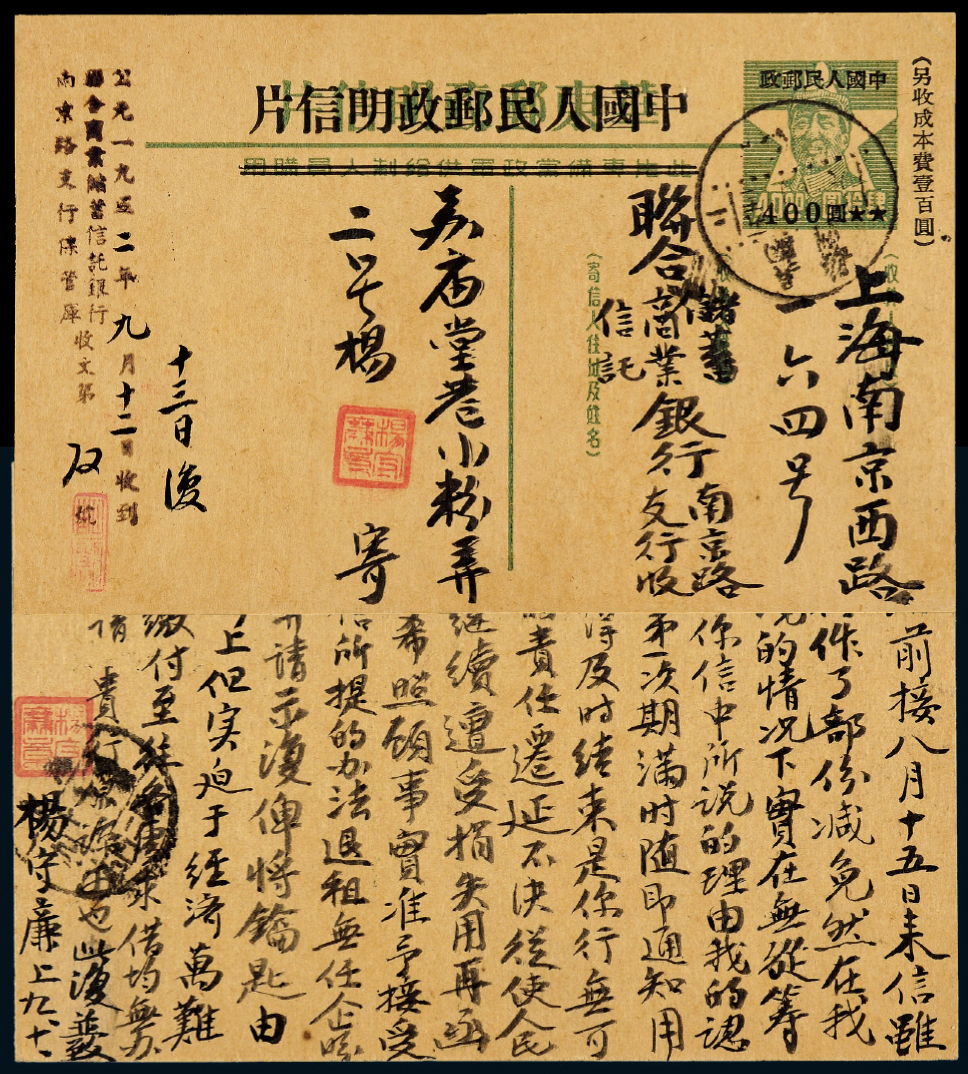 (另收成本費壹百圓)
中國人民郵政
400圓
中國人民郵政明信片
上海南京西路
一六四号
聯合商業
儲蓄
信託
銀行
南京路
支行收
(寄信人住址及姓名)
嘉庙堂巷小粉弄
二号楊
寄
十三日復
公元一九五二年九月十二日收到
聯合商業儲蓄信託銀行
南京路支行保管庫收文第
号
前接八月十五日来信雖
作了部份减免然在我
的情况下實在無從筹
你信中所说的理由我的認
第一次期满时随即通知用
得及时结束是你行無可
責任遷延不决從使人民
继續遭受损失用再函
希照顾事實准予接受
信所提的办法退租無任企
请示復俾将鑰匙由
上但实迫于经濟萬難
缴付至
借均無办
貴行
也此復並
楊守廉上九、十、